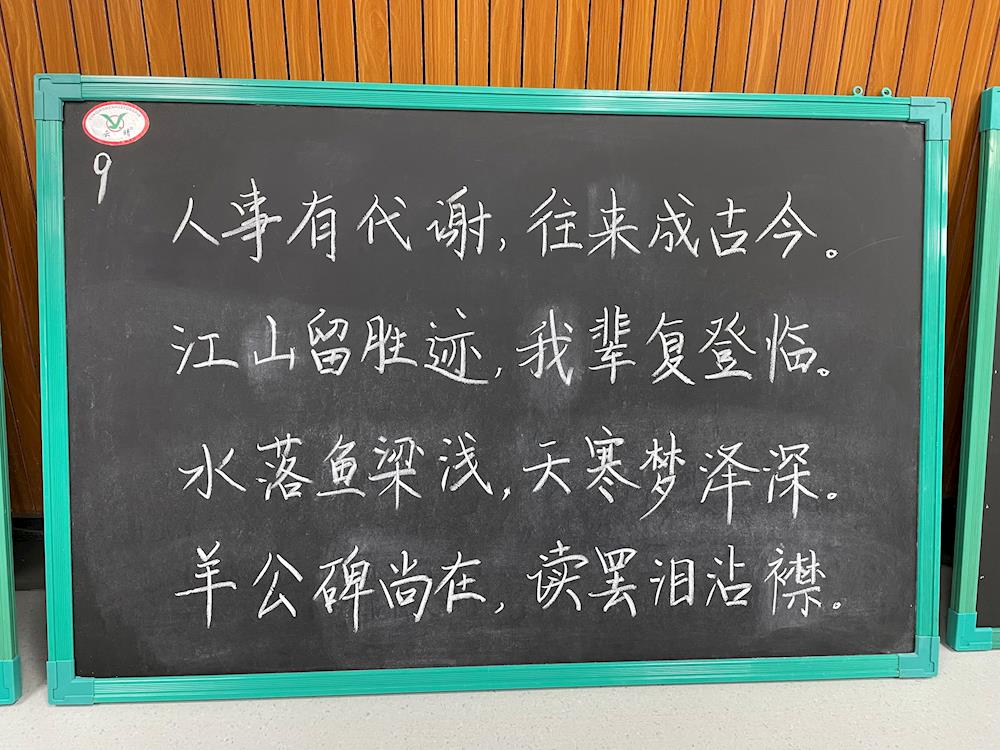 9
人事有代谢,往来成古今。
江山留胜迹,我辈复登临。
水落鱼梁浅,天寒梦泽深。
羊公碑尚在,读罢泪沾襟。